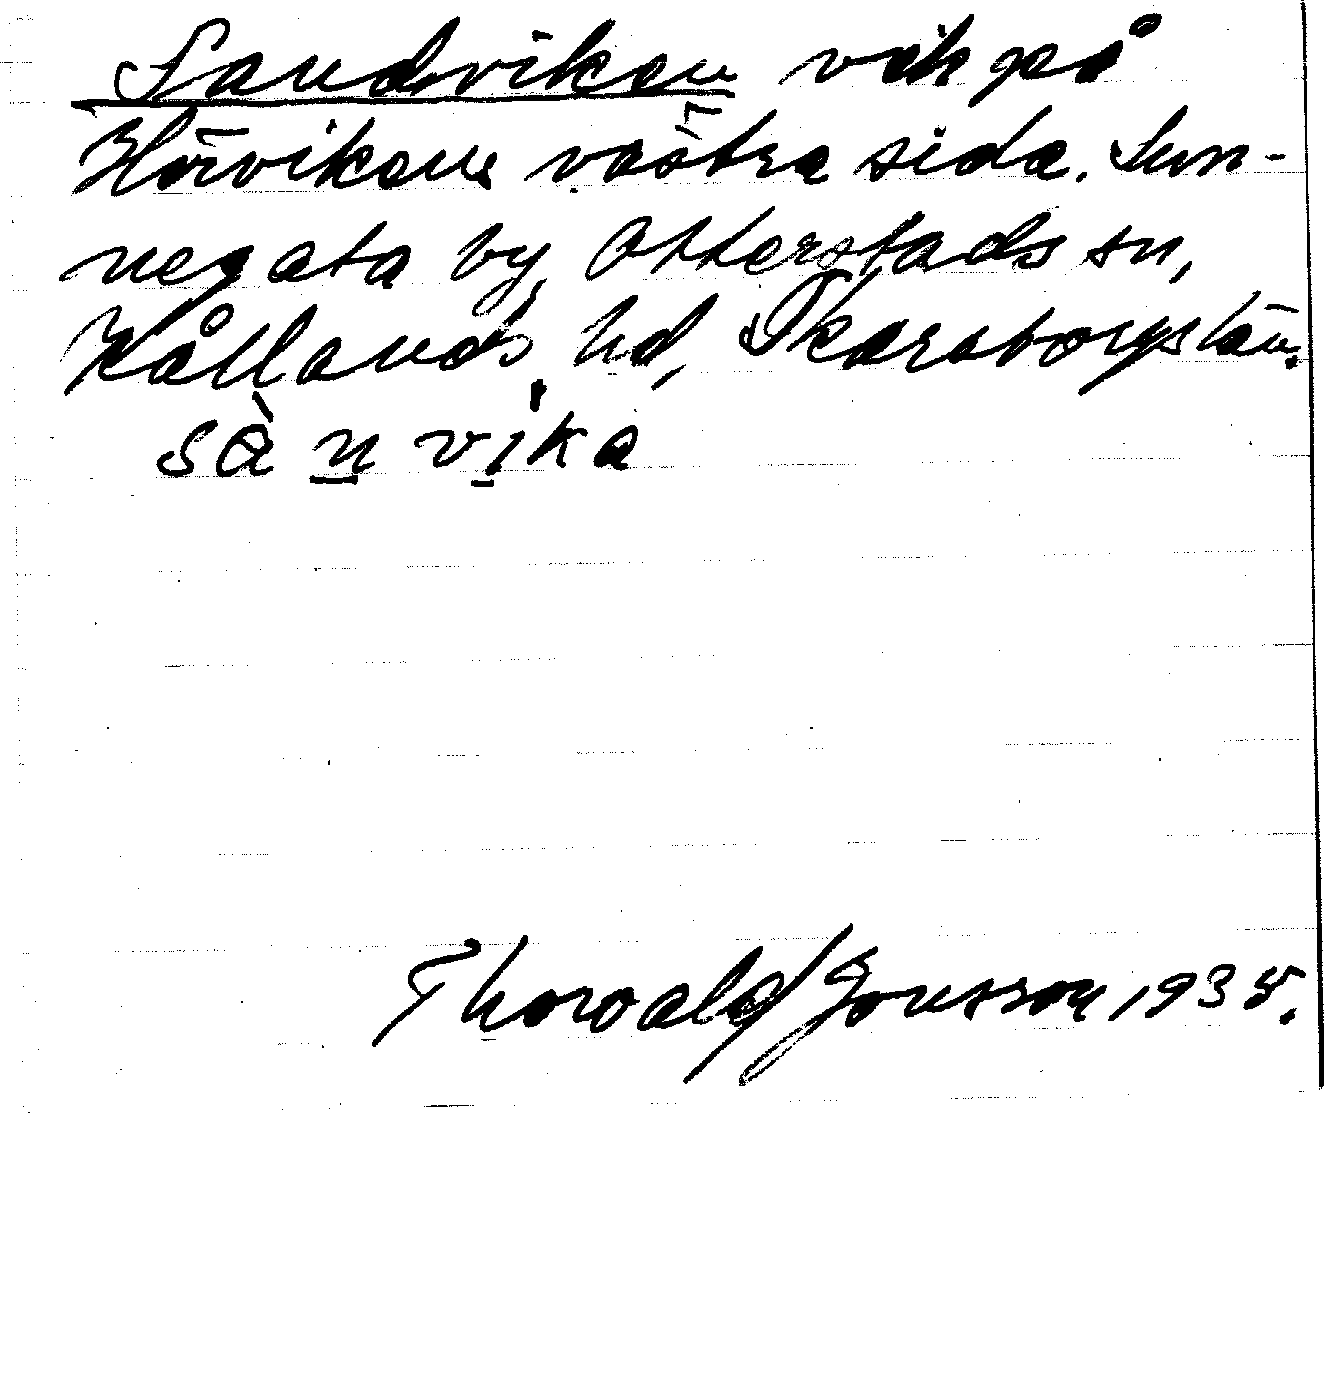 Sandviken vik på
Hörvikens västra sida. Sun-
negata by, Otterstads sn,
Kållands hd, Skaraborgs län.
sànvika
Thorvald Jonsson 1935.